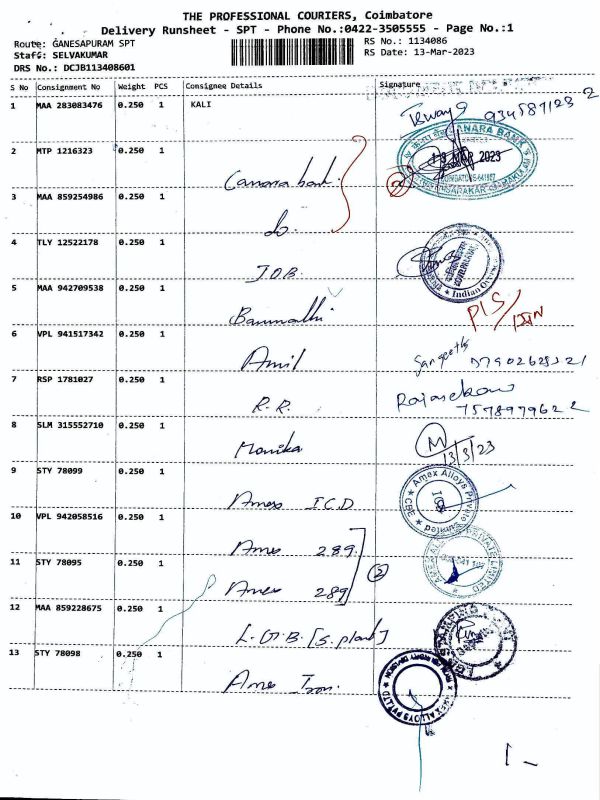 THE PROFESSIONAL COURIERS, Coimbatore
Delivery Runsheet - SPT - Phone No.:0422-3505555 - Page No.:1
Route: GANESAPURAM SPT
RS No.: 1134086
Staff: SELVAKUMAR
RS Date: 13-Mar-2023
DRS No.: DCJB113408601
S No Consignment No Weight PCS Consignee Details Signature
1 MAA 283083476 0.250 1 KALI
2 MTP 1216323 0.250 1 Canara bank
CANARA BANK
MAR 2023
3 MAA 859254986 0.250 1 do.
4 TLY 12522178 0.250 1 I.O.B.
Indian
5 MAA 942709538 0.250 1
6 VPL 941517342 0.250 1 Amil Sangeetha
7 RSP 1781027 0.250 1 R.R. Rajasekar
7578979622
8 SLM 315552710 0.250 1 Monika M
13/3/23
9 STY 78099 0.250 1 Amex I.C.D
Amex Alloys Private Limited
CBE
10 VPL 942058516 0.250 1 Amex 289
11 STY 78095 0.250 1 Amex 289 2
AMEX ALLOYS PRIVATE LIMITED
12 MAA 859228675 0.250 1 L.G.B. [S. plant]
13 STY 78098 0.250 1 Amex Iron.
AMEX ALLOYS PVT LTD